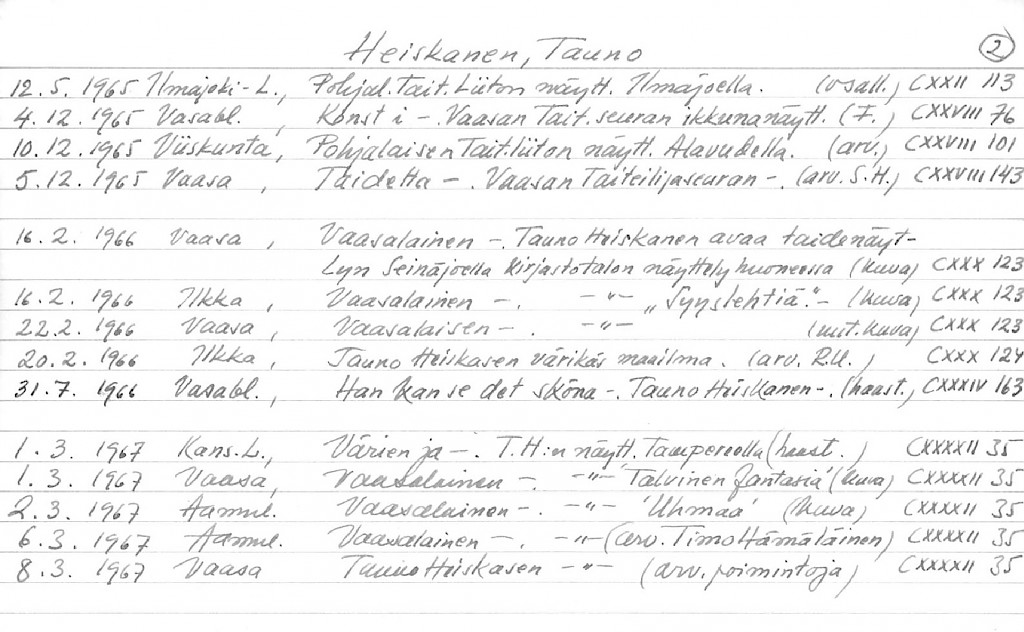 Heiskanen, Tauno 2
12.5. 1965 Ilmajoki-L., Pohjal. Tait. Liiton näytt. Ilmajoella. (osall.) CXXII 113
4.12. 1965 Vasabl. , Konst i -. Vaasan Tait. seuran ikkunanäytt. (F.) CXXVIII 76
10.12. 1965 Viiskunta, Pohjalaisen Tait. liiton näytt. Alavudella. (arv.) CXXVIII 101
5.12. 1965 Vaasa , Taidetta -. Vaasan Taiteilijaseuran -. (arv. S.H.) CXXVIII 143
16.2. 1966 Vaasa , Vaasalainen -. Tauno Heiskanen avaa taidenäyt-
lyn Seinäjoella Kirjastotalon näyttelyhuoneessa (kuva) CXXX 123
16.2. 1966 Ilkka , Vaasalainen -. -"- "Syyslehtiä". - (kuva) CXXX 123
22.2. 1966 Vaasa , Vaasalaisen -. -"- (uut. kuva) CXXX 123
20.2. 1966 Ilkka , Tauno Heiskasen värikäs maailma. (arv. R.U.) CXXX 124
31.7. 1966 Vasabl. , Han kan se det sköna -. Tauno Heiskanen -. (haast.) CXXXIV 163
1.3. 1967 Kans. L., Värien ja -. T.H:n näytt. Tampereella (haast.) CXXXXII 35
1.3. 1967 Vaasa, Vaasalainen -. -"- 'Talvinen fantasia' (kuva) CXXXXII 35
2.3. 1967 Aamul. Vaasalainen -. -"- 'Uhmaa' (kuva) CXXXXII 35
6.3. 1967 Aamul. Vaasalainen -. -"- (arv. Timo Hämäläinen) CXXXXII 35
8.3. 1967 Vaasa Tauno Heiskasen -"- (arv. poimintoja) CXXXXII 35